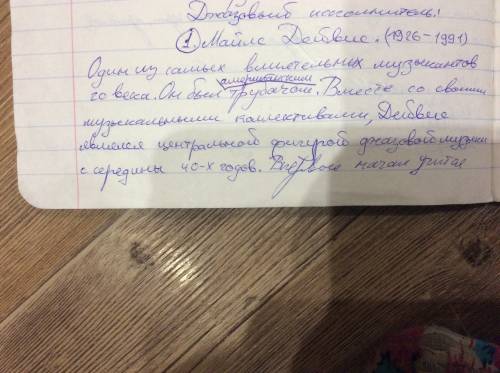 Джазовый исполнитель:
① Майлс Дейвис. (1926-1991)
Один из самых влиятельных музыкантов
американским
го века. Он был трубачом. Вместе со своими
музыкальными коллективами, Дейвис
являлся центральной фигурой джазовой музыки
с середины 40-х годов. Впервые начал учится